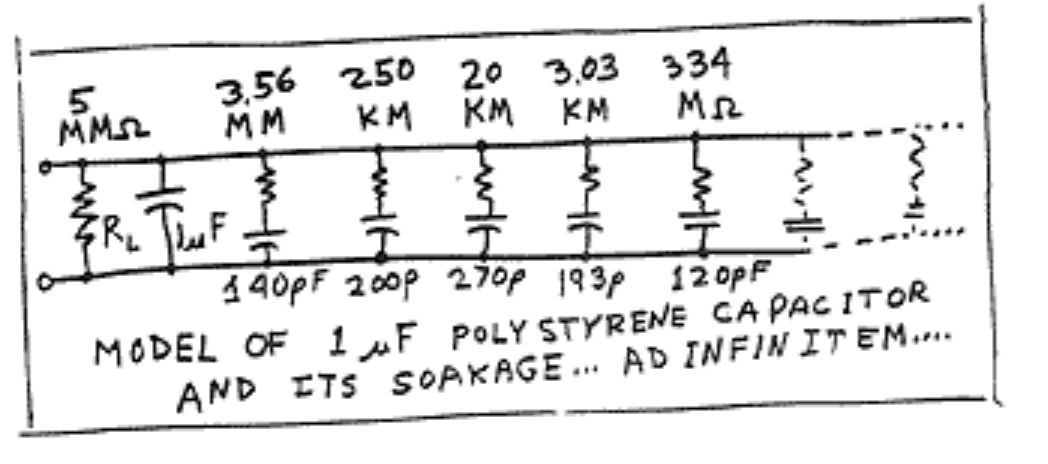 5 3.56 250 20 3.03 334
MMΩ MM KM KM KM MΩ
RL 1μF
140pF 200p 270p 193p 120pF
MODEL OF 1 μF POLYSTYRENE CAPACITOR
AND ITS SOAKAGE... AD INFINITEM....